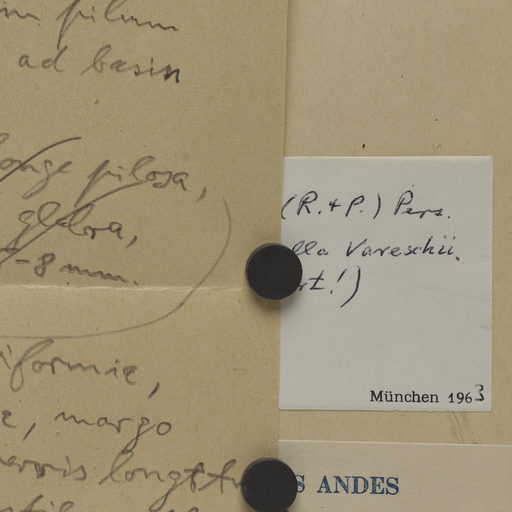 pilum
ad basin
longe pilosa,
glabra,
7-8 mm.
iformia,
, margo
nervis longit
(R. + P.) Pers.
lla Vareschii.
rt!)
München 1963
S ANDES